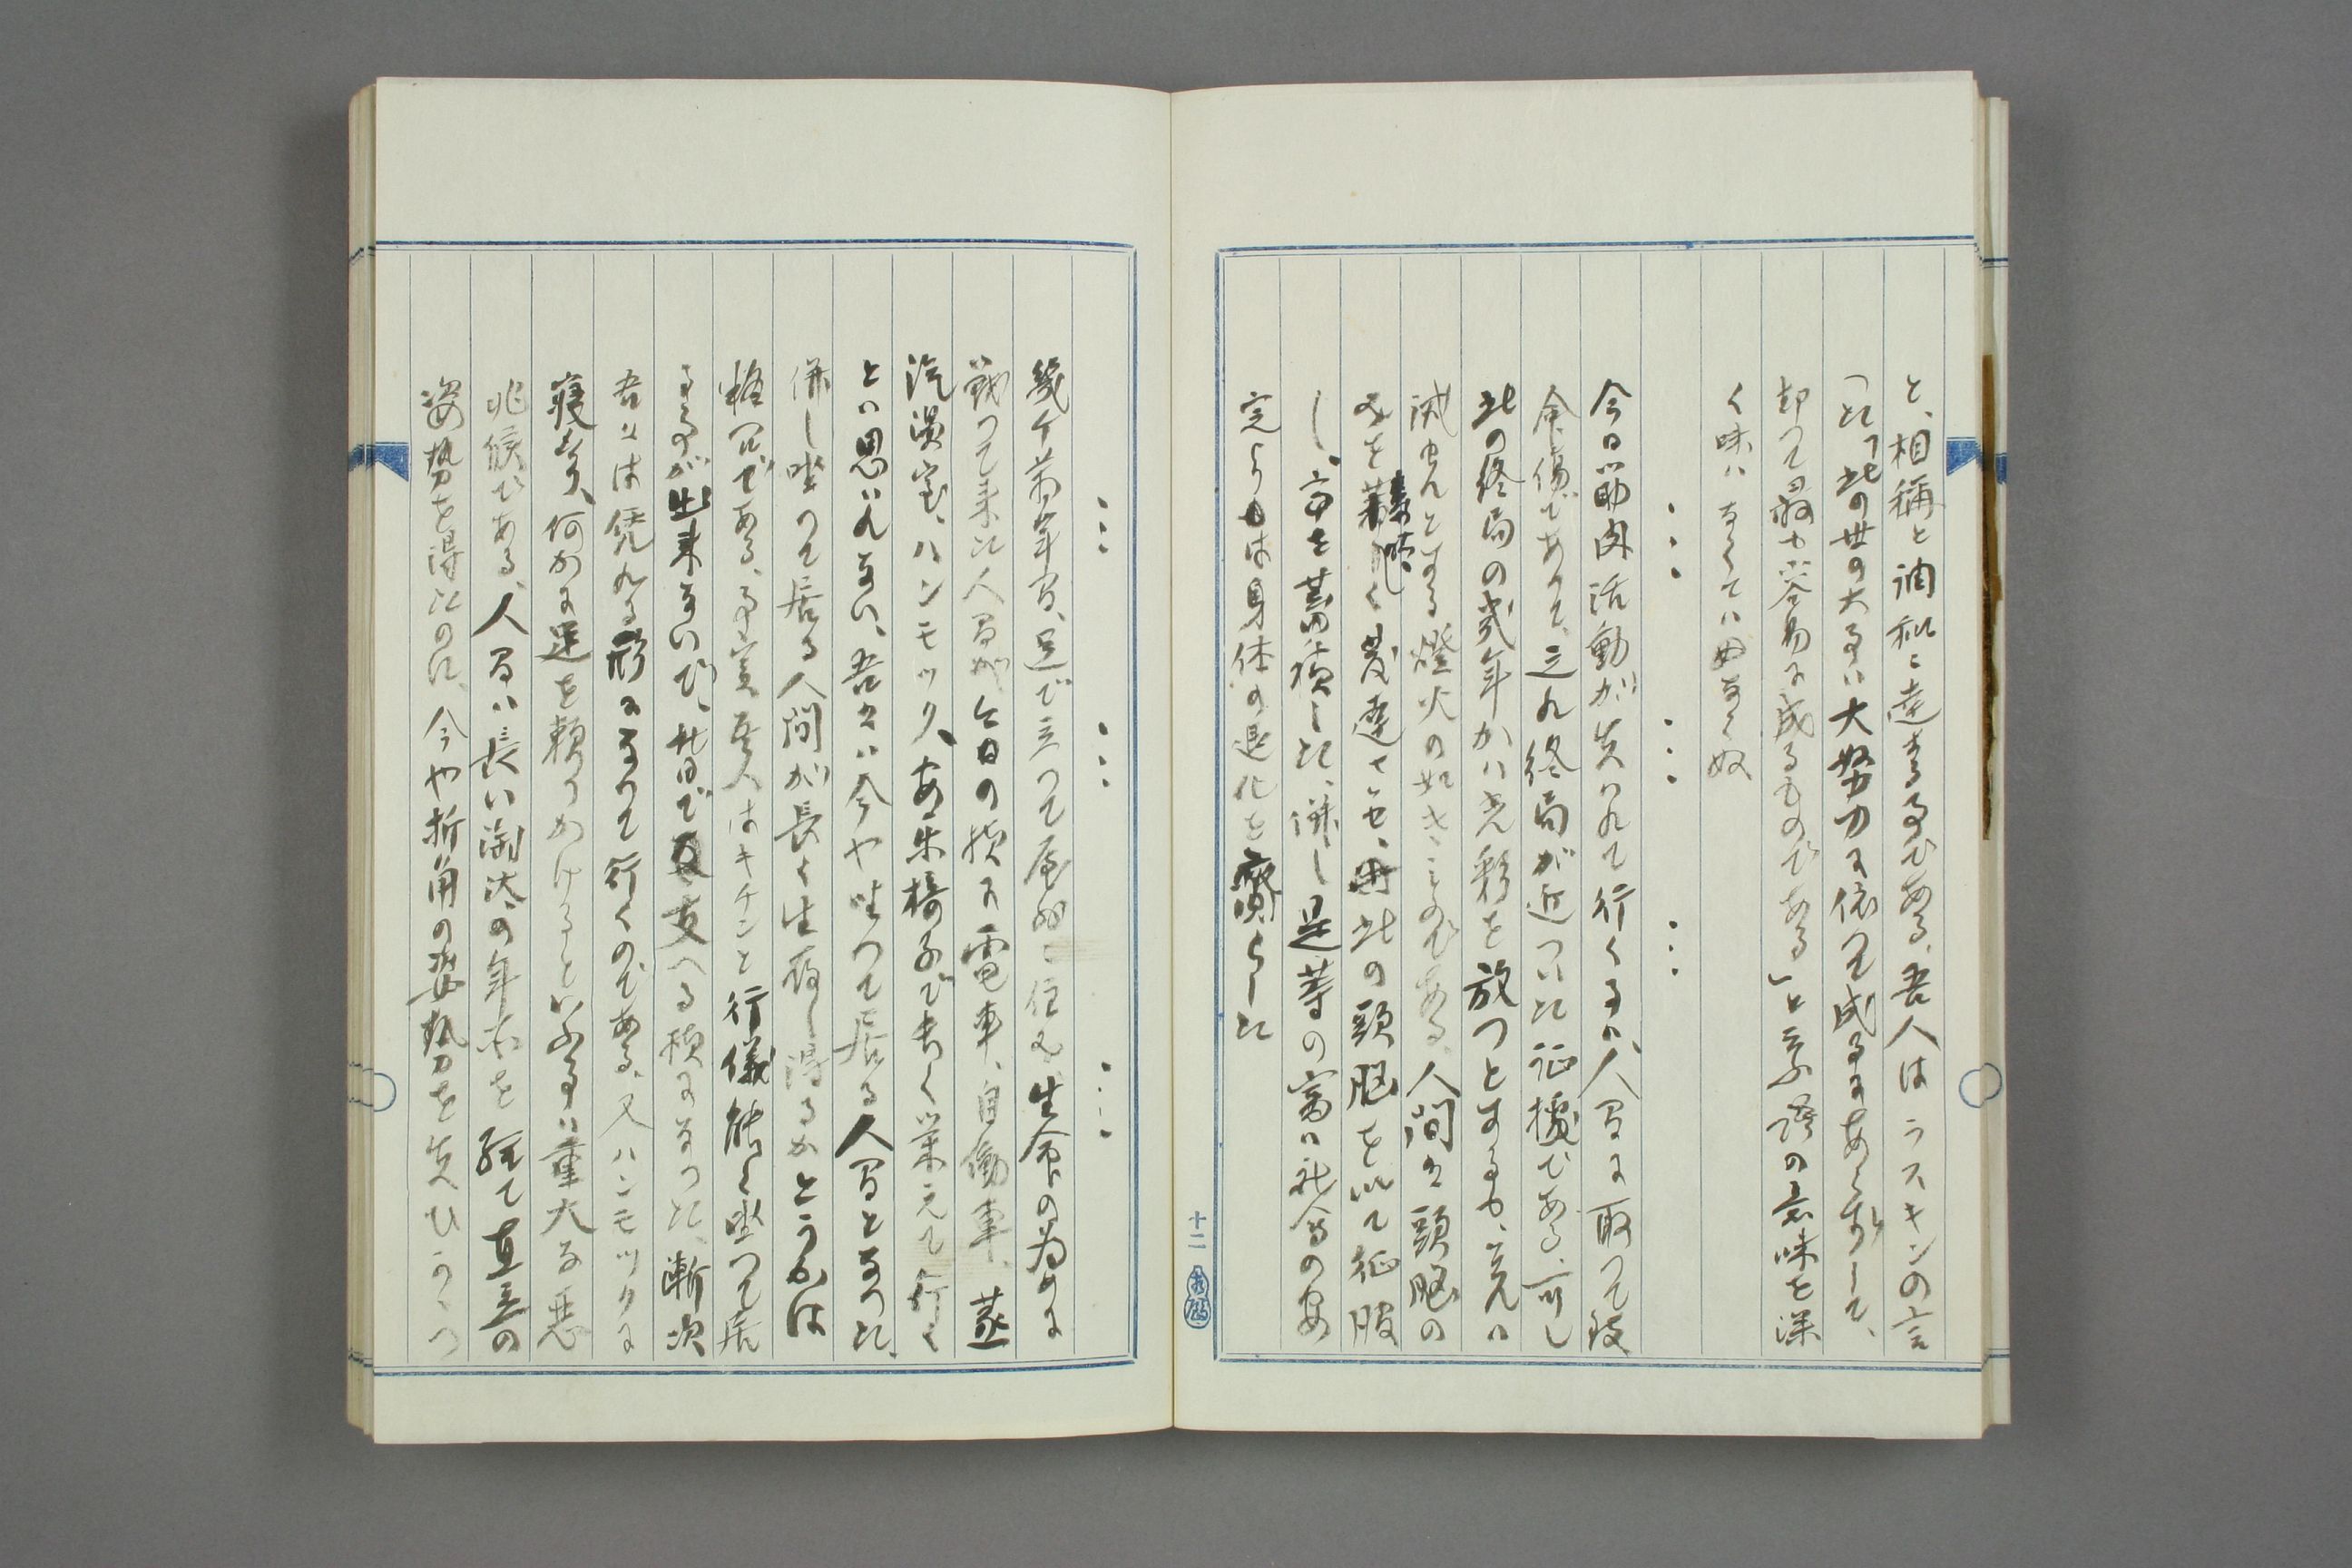 と、相稱と調和に達する事である、吾人はラスキンの言
つた「此の世の大事は大努力に依つて成る事にあらずして、
却つて最も容易に成るものである」と云ふ語の意味を深
く味はなくてはならぬ
∴ ∴ ∴
今日筋肉活動が失はれて行く事は、人間に取つて致
命傷であつて、之れ終局が近づいた証據である、可し
此の終局の幾年かは光彩を放つとするも、之れは
滅せんとする燈火の如きものである、人間は頭脳の
みを著しく発達させ、此の頭脳を以て征服
し、富を蓄積した、併し是等の富は社会の安
定よりも身体の退化を齎らした
十二
∴ ∴ ∴
幾千萬年間、足で立つて屋外に住み、生命の為めに
戦つて来た人間が今日の様に電車、自働車、蒸
汽演室、ハンモック、安楽椅子で悉く栄えて行く
とは思はれない、吾々は今や坐つて居る人間となつた、
併し坐つて居る人間が長く生存し得るかどうかは
疑問である、事実吾人はキチンと行儀能く坐つて居
る事が出来ないで、背日で支へる様になつた、漸次
吾々は凭れる形になつて行くのである、又ハンモックに
寝臭、何かに足を頼りかけるといふ事は重大な悪
兆候である、人間は長い淘汰の年か を経て直立の
姿勢を得たのに、今や折角の姿勢を失ひつゝ